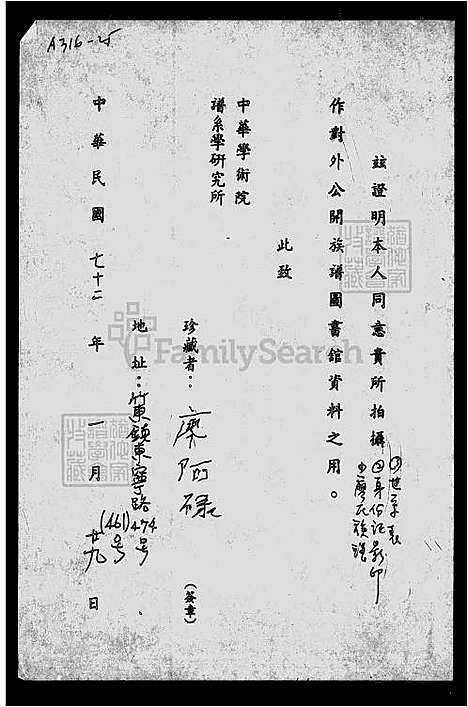 A316-25
茲證明本人同意貴所拍攝
①世系表
②身份証影印
③廖氏族譜
作對外公開族譜圖書館資料之用。
此致
中華學術院
譜系學研究所
珍藏者：廖阿祿（簽章）
地址：竹東鎮東寧路474号
(461)号
中華民國七十二年一月廿九日
FamilySearch